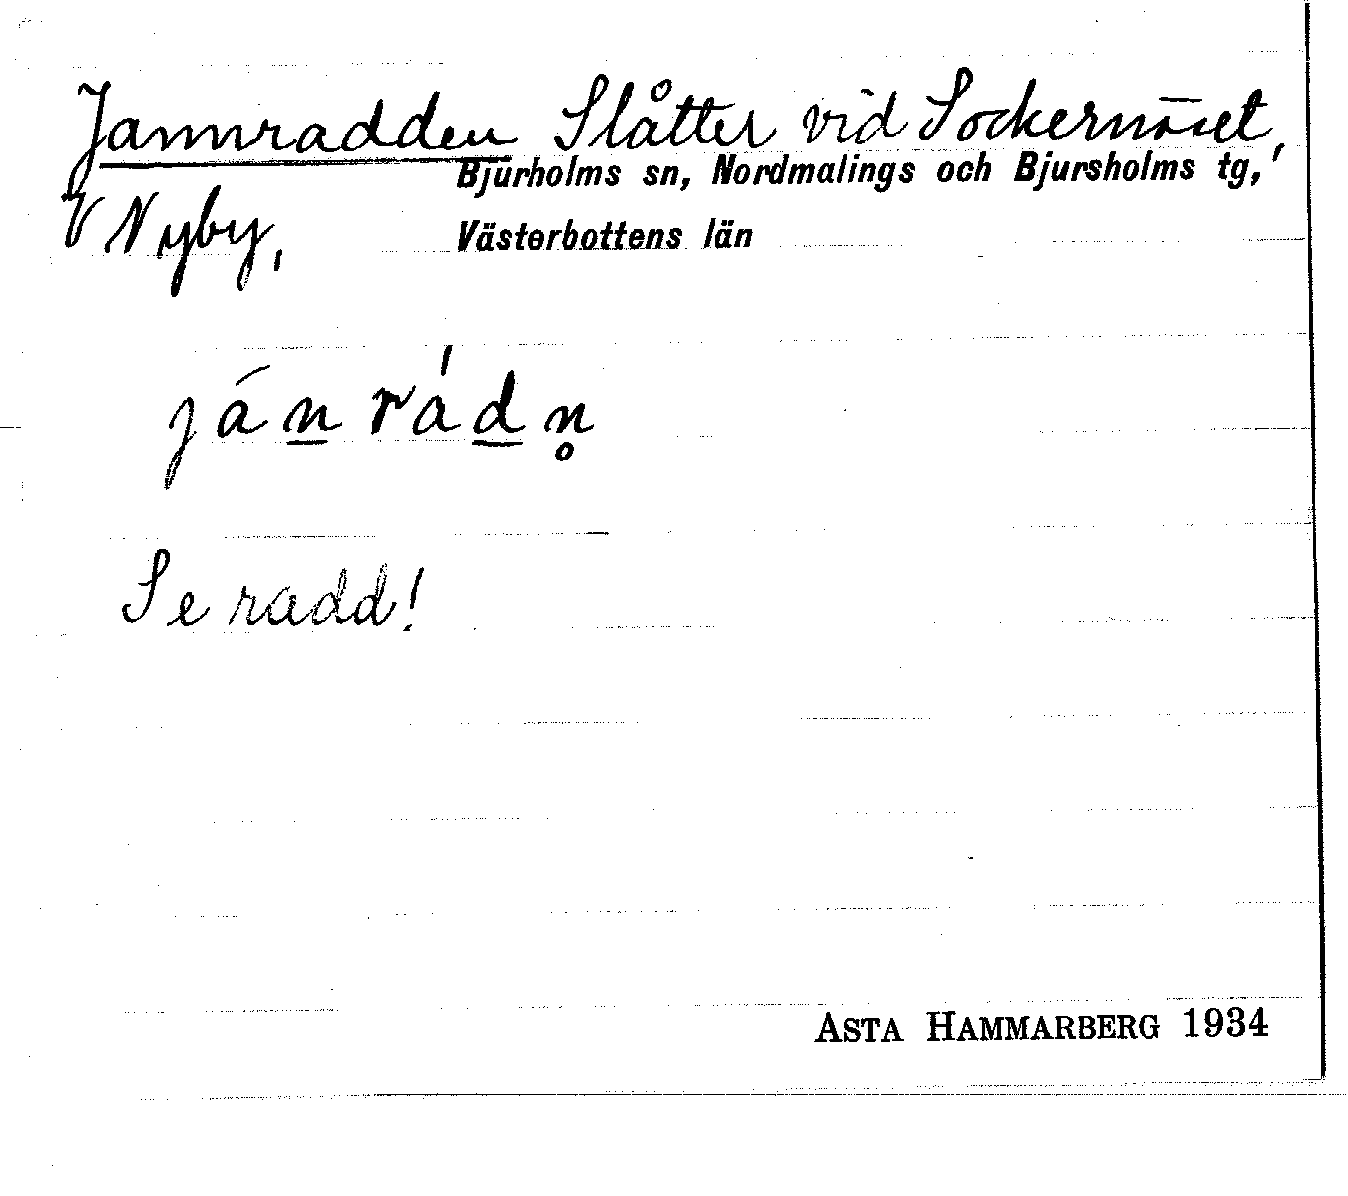 Jamnradden Slåtter vid Sockernäset,
Bjurholms sn, Nordmalings och Bjursholms tg,
V Nyby, Västerbottens län
ján̲ rád̲n̥
Se radd!
ASTA HAMMARBERG 1934